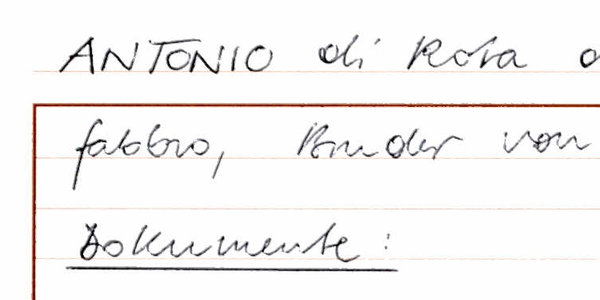 ANTONIO di Rosa
fabbro, Bruder von
Dokumente: